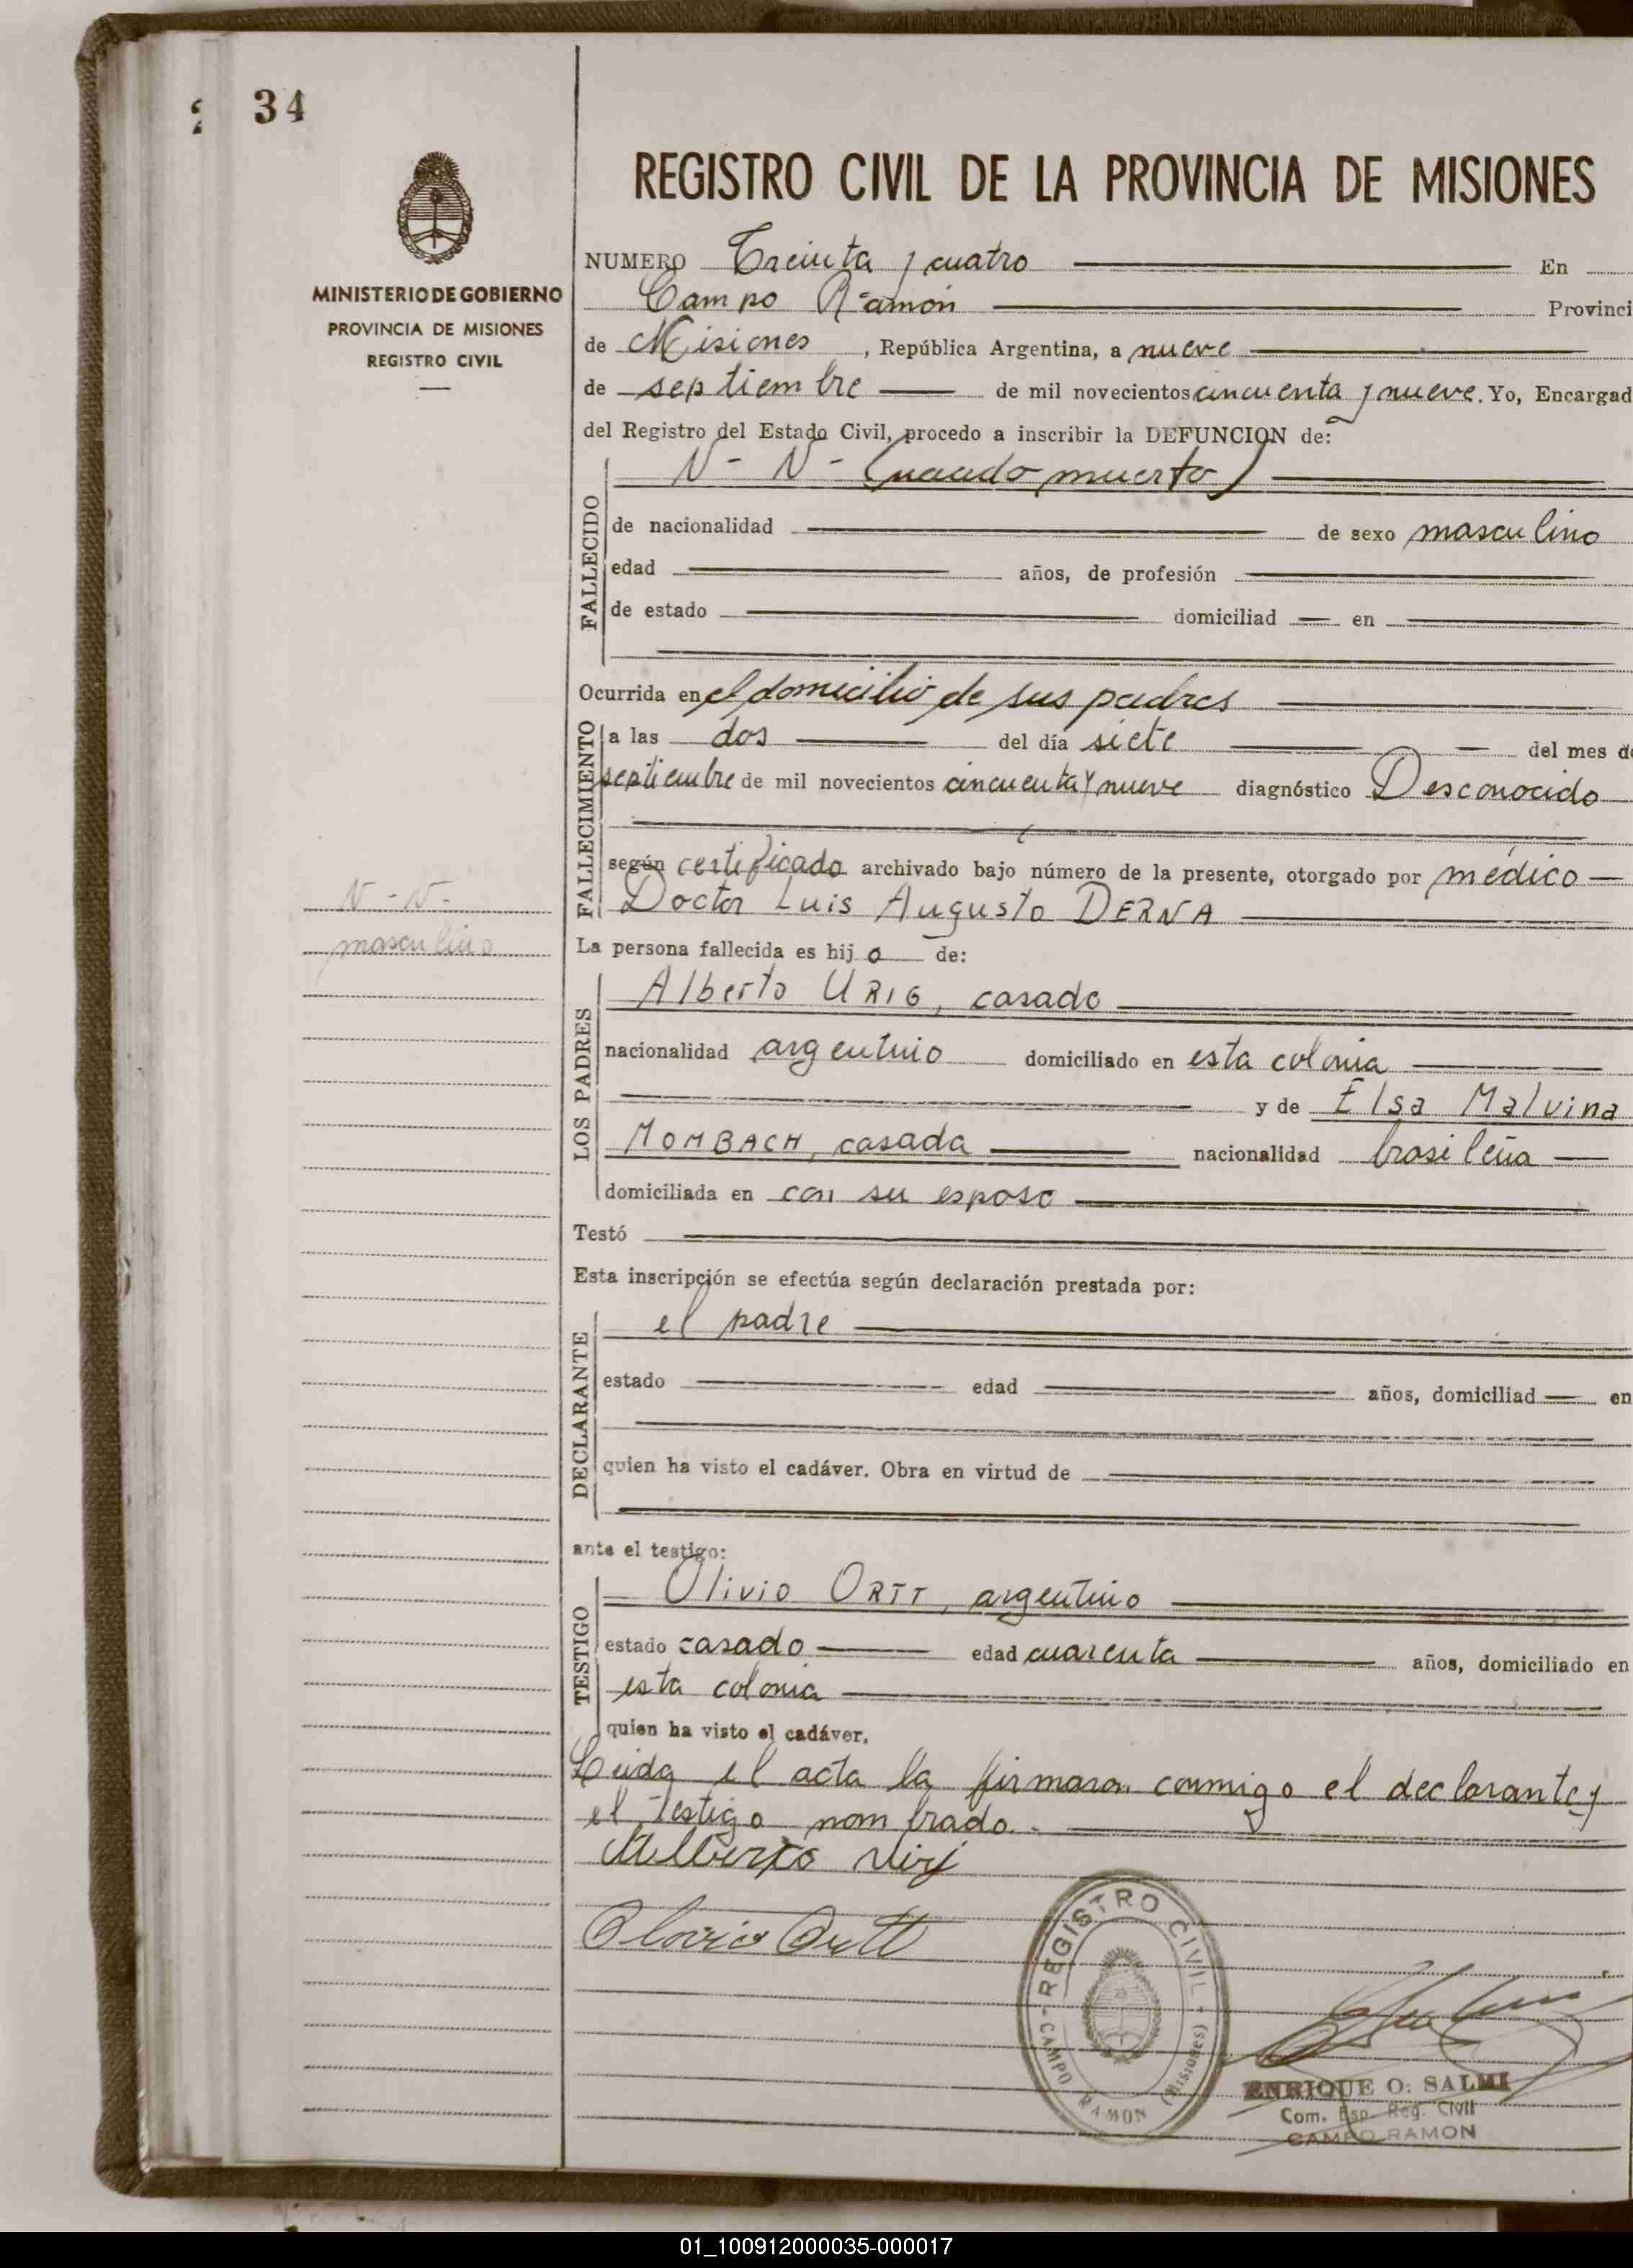 34
MINISTERIO DE GOBIERNO
PROVINCIA DE MISIONES
REGISTRO CIVIL
N - N -
masculino
REGISTRO CIVIL DE LA PROVINCIA DE MISIONES
NUMERO Treinta y cuatro En
Campo Ramón Provinci
de Misiones, República Argentina, a nueve
de septiembre de mil novecientos cincuenta y nueve. Yo, Encargad
del Registro del Estado Civil, procedo a inscribir la DEFUNCION de:
N - N - (nacido muerto)
FALLECIDO
de nacionalidad de sexo masculino
edad años, de profesión
de estado domiciliad en
Ocurrida en el domicilio de sus padres
FALLECIMIENTO
a las dos del día siete del mes de
septiembre de mil novecientos cincuenta y nueve diagnóstico Desconocido
según certificado archivado bajo número de la presente, otorgado por médico
Doctor Luis Augusto DERNA
La persona fallecida es hijo de:
LOS PADRES
Alberto URIG, casado
nacionalidad argentino domiciliado en esta colonia
y de Elsa Malvina
MOMBACH, casada nacionalidad brasileña
domiciliada en con su esposo
Testó
Esta inscripción se efectúa según declaración prestada por:
DECLARANTE
el padre
estado edad años, domiciliad en
quien ha visto el cadáver. Obra en virtud de
ante el testigo:
TESTIGO
Olivio ORTT, argentino
estado casado edad cuarenta años, domiciliado en
esta colonia
quien ha visto el cadáver.
Leida el acta la firmaron conmigo el declarante y
el testigo nombrado.
Alberto Urig
Olivio Ortt
REGISTRO CIVIL - CAMPO RAMON (Misiones) -
ENRIQUE O. SALMI
Com. Esp. Reg. Civil
CAMPO RAMON
01_100912000035-000017